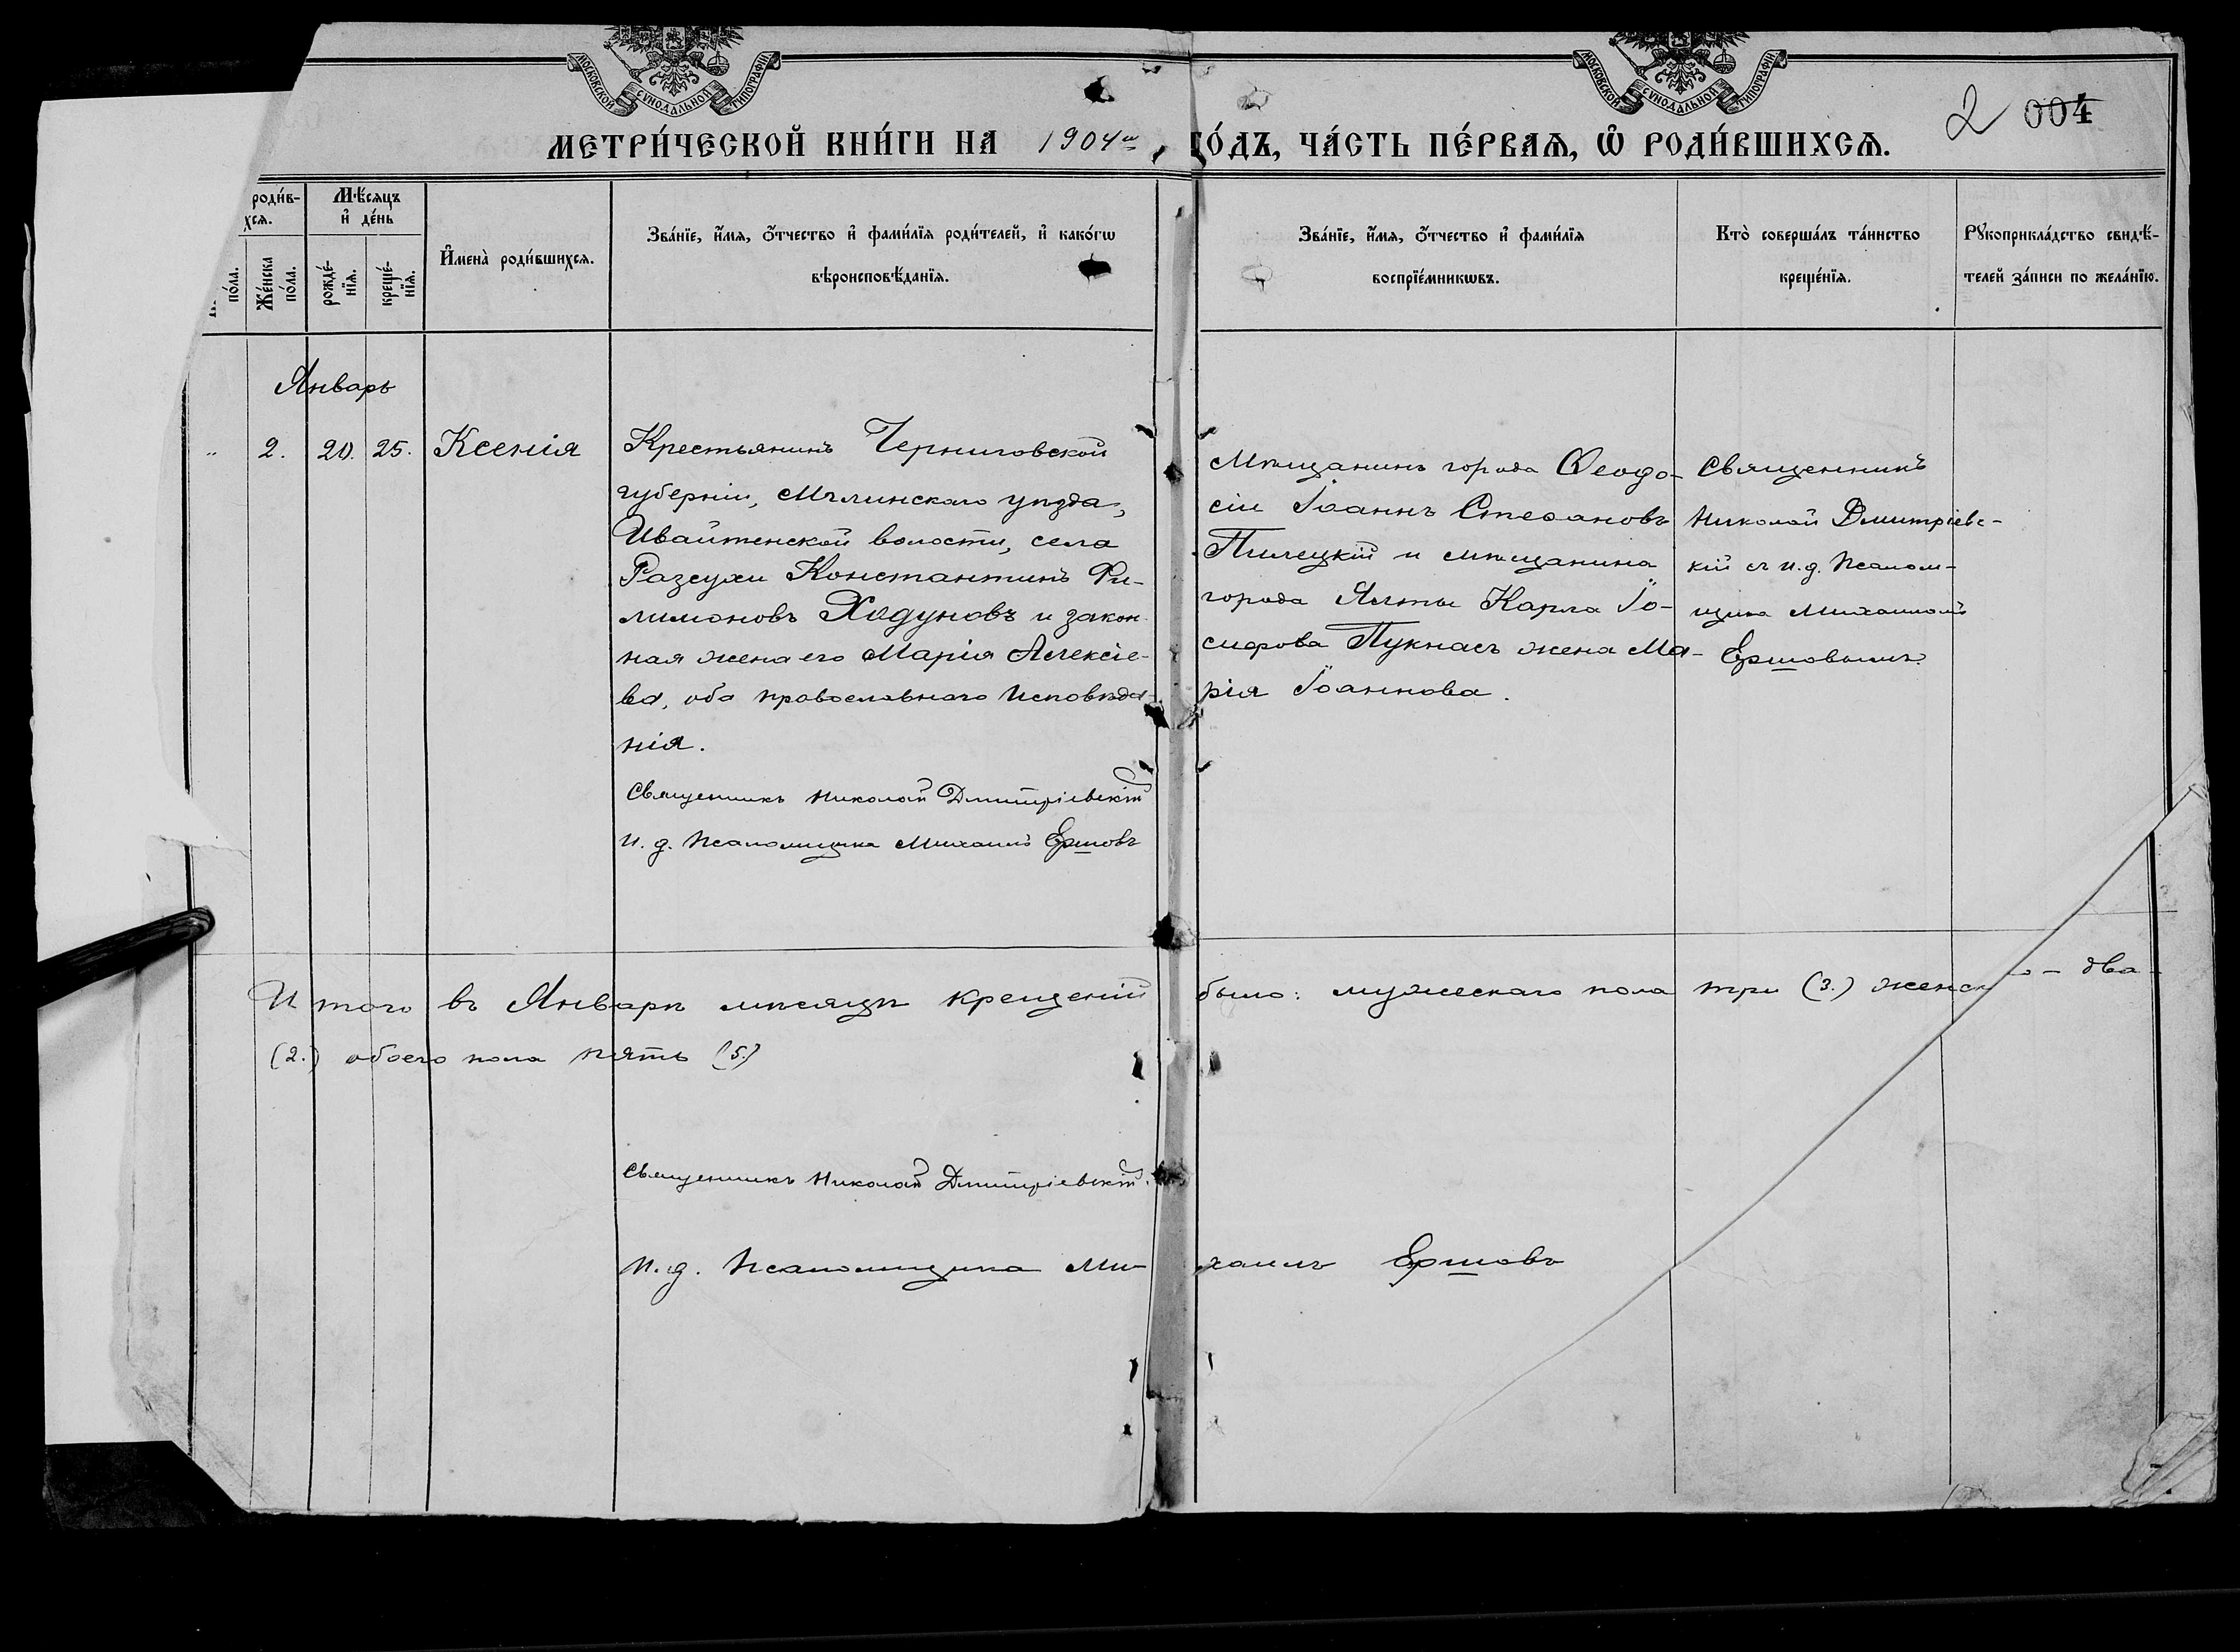 МОСКОВСКОЙ СѴНОДАЛЬНОЙ ТИПОГРАФІИ
МОСКОВСКОЙ СѴНОДАЛЬНОЙ ТИПОГРАФІИ
2 004
МЕТРИ́ЧЕСКОЙ КНИ́ГИ НА 1904й, ГО́ДЪ, ЧА́СТЬ ПЕ́РВАѦ, Ѡ҆ РОДИ́ВШИХСѦ.
роди́в-
хсѧ.
по́ла.
Же́нска
по́ла.
Мѣ́сѧцъ
и҆ де́нь
рожде́-
нїѧ.
креще́-
нїѧ.
И҆мена̀ роди́вшихсѧ.
Зва́нїе, и҆́мѧ, ѻ҆́тчество и҆ фамѝлїѧ роди́телей, и҆ како́гѡ
вѣроисповѣ́данїѧ.
Зва́нїе, и҆́мѧ, ѻ҆́тчество и҆ фамѝлїѧ
воспрїе́мникѡвъ.
Кто̀ соверша́лъ та́инство
креще́нїѧ.
Рꙋкоприкла́дство свидѣ́-
телей за́писи по жела́нїю.
Январь
" 2. 20. 25. Ксенія
Крестьянинъ Черниговской
губерніи, Мглинскаго уѣзда,
Ивайтенской волости, села
Разсухи Константинъ Фи-
лимоновъ Ходуновъ и закон-
ная жена его Марія Алексіе-
ва, оба православнаго исповѣда-
нія.
Священникъ Николай Дмитріевскій
И. д. псаломщика Михаилъ Ершовъ
Мѣщанинъ города Ѳеодо-
сіи Іоаннъ Стефановъ
Пилецкій и мѣщанина
города Ялты Карла Іо-
сифова Пукнасъ жена Ма-
рія Іоаннова.
Священникъ
Николай Дмитріевс-
кій съ и. д. псалом-
щика Михаиломъ
Ершовымъ.
Итого въ Январѣ мѣсяцѣ крещеній было: мужескаго пола три (3.) женск - два
(2.) обоего пола пять (5.)
Священникъ Николай Дмитріевскій.
И. д. псаломщика Михаилъ Ершовъ